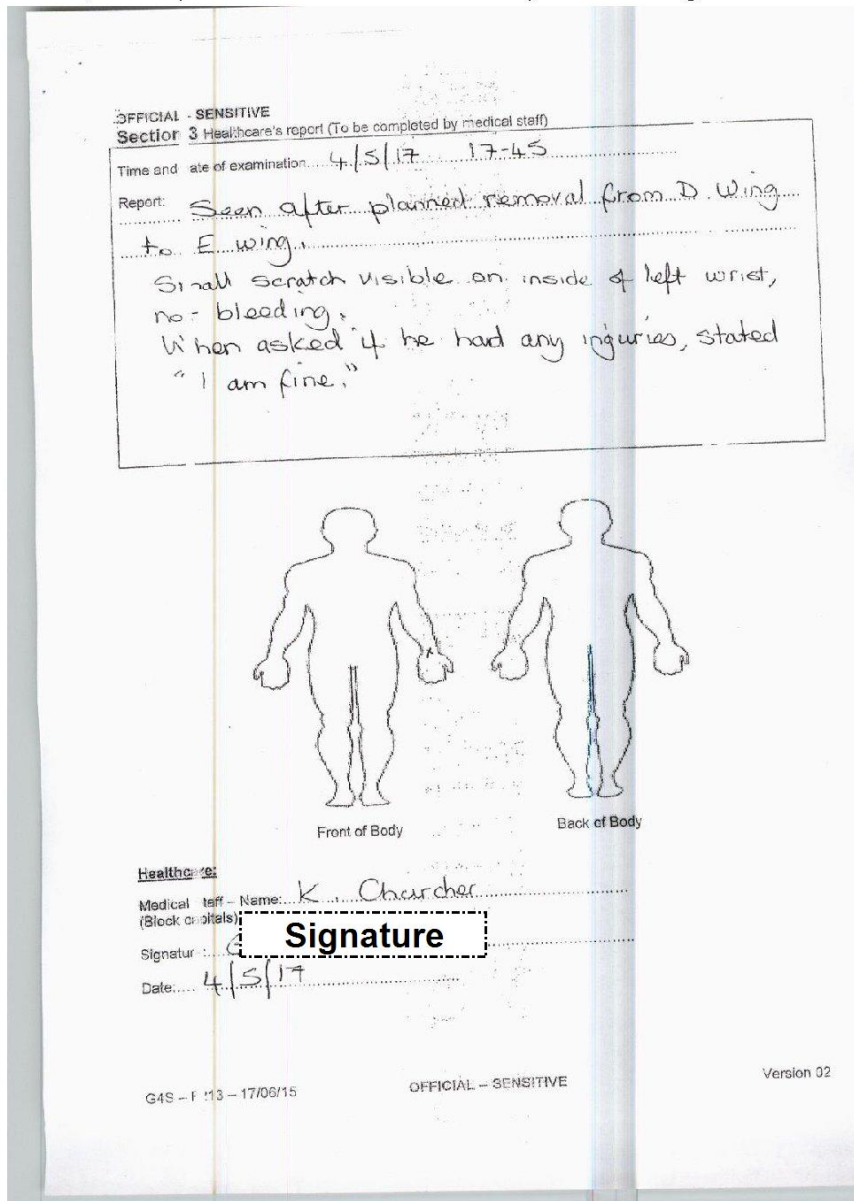 OFFICIAL - SENSITIVE
Section 3 Healthcare's report (To be completed by medical staff)
Time and ate of examination 4/5/17 17-45
Report: Seen after planned removal from D. Wing
to E wing.
Small scratch visible on inside of left wrist,
no - bleeding.
When asked if he had any injuries, stated
"I am fine."
Front of Body
Back of Body
Healthcare:
Medical taff – Name: K. Churcher
(Block capitals)
Signatur : Signature
Date: 4/5/17
G4S – 13 – 17/06/15
OFFICIAL – SENSITIVE
Version 02